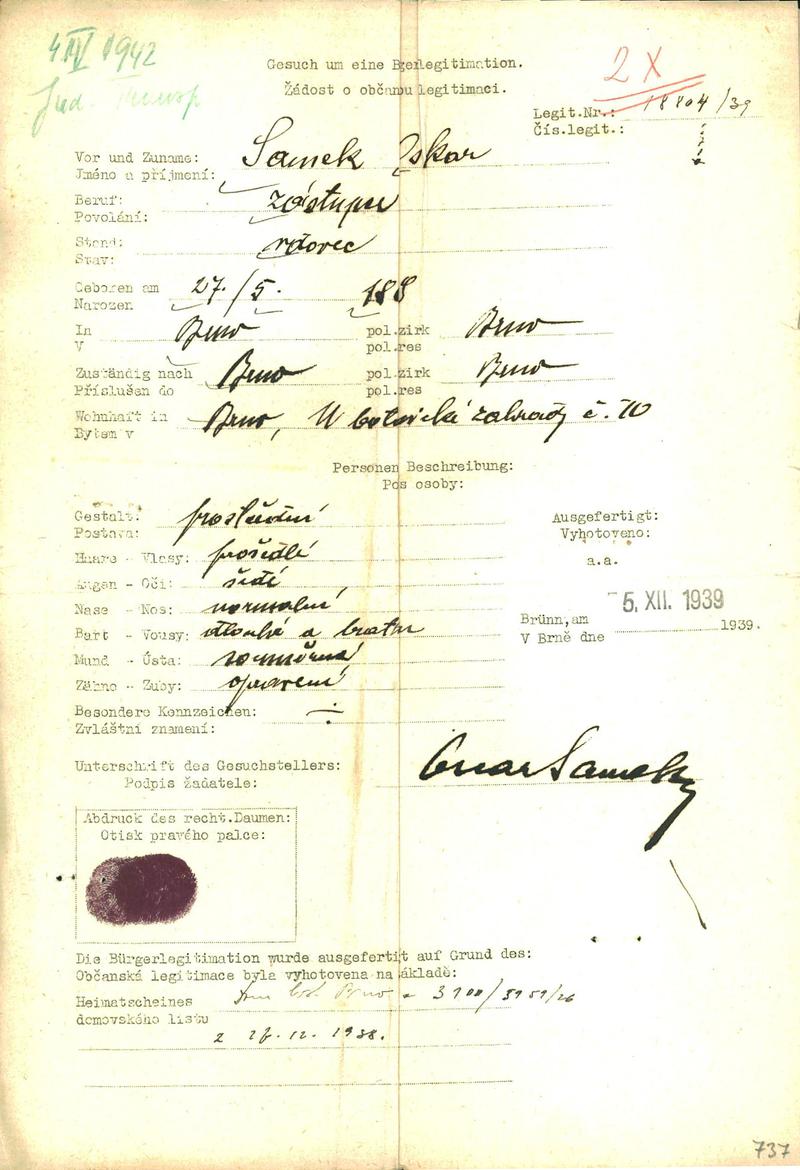 4 IV 1942
Gesuch um eine Bgerlegitimation.
2 X
Jud. Transp
Žádost o občanu legitimaci.
Legit.Nr.: 18804/39
Čís.legit.:
Vor und Zuname: Samek Oskar
Jméno a příjmení:
Beruf: zástupce
Povolání:
Stand: vdovec
Stav:
Geboren am 27./5. 188
Narozen
In Brno pol.zirk Brno
V pol.res
Zuständig nach Brno pol.zirk Brno
Příslušen do pol.res
Wohnhaft in Brno, U botanické zahrady č. 10
Bytem v
Personen Beschreibung:
Pos osoby:
Gestalt: prostřední
Postava:
Ausgefertigt:
Vyhotoveno:
Haare - Vlasy: prošedlé
a.a.
Augen - Oči: šedé
Nase - Nos: normalní
5. XII. 1939
Bart - Vousy: dlouhé a
Brünn, am 1939.
V Brně dne
Mund - Ústa: souměrná
Zähne - Zuby: opravení
Besondere Kennzeichen: ÷
Zvláštní znamení:
Unterschrift des Gesuchstellers: Oscar Samek
Podpis žadatele:
Abdruck des recht.Daumen:
Otisk pravého palce:
Die Bürgerlegitimation wurde ausgefertit auf Grund des:
Občanská legitimace byla vyhotovena na ákladě:
Heimatscheines Brno
domovského listu
z 12. 1938.
737